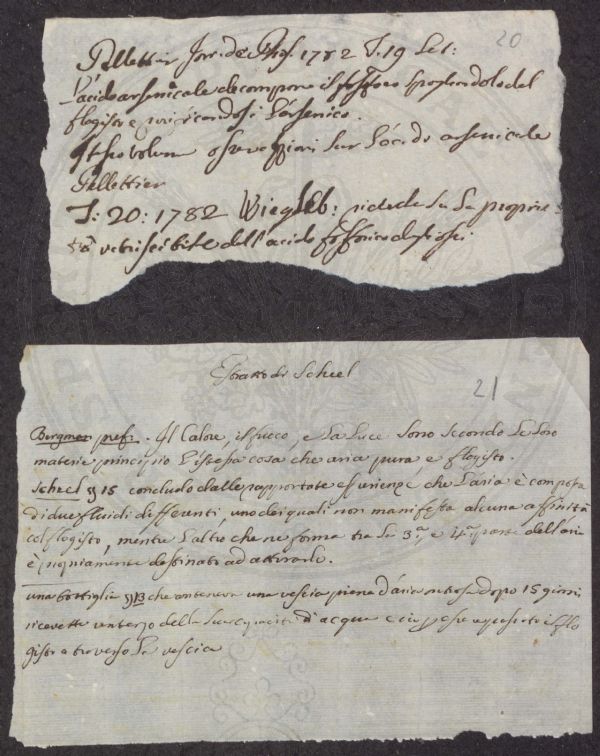 20
Pellettier Jor. de Phis. 1782 T. 19 Let:
L'acido arsenicale decompone il fosforo spogliandolo del
flogisto e
l'arsenico.
osservazioni sur l'acido arsenicale
Pellettier
T: 20: 1782 Wiegleb: su la proprie
tà vetrescibile dell'acido fosforico
21
Estratto di Scheel
Bergman pref. Il Calore, il fuoco, e la luce sono secondo le loro
materie principio l'istessa cosa, che aria pura, e flogisto.
Scheel § 15 concludo dalle rapportate esperienze che l'aria è composta
di due fluidi differenti uno dei quali non manifesta alcuna affinità
col flogisto, mentre l'altro che ne forma tra la 3.a e 4.a parte dell'aria
è propriamente destinato ad attirarlo.
una bottiglia § 13 che conteneva una vescia piena d'aria dopo 15 giorni
ricevette un terzo della sua capacità d'acqua e ciò il flo
gisto a traverso la vescia